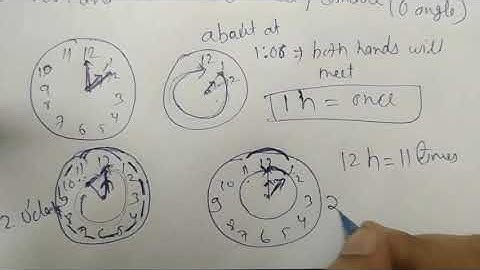 (0 angle)
about at
1:05 ⇒ both hands will
meet
1 h = once
12 h = 11 times
11 12 1
10 2
9 3
8 4
7 6 5
12 1
2
11 12 1
10
9 3
8 4
7 6 5
11 12 1
10 2
9 3
8 4
7 6 5
2